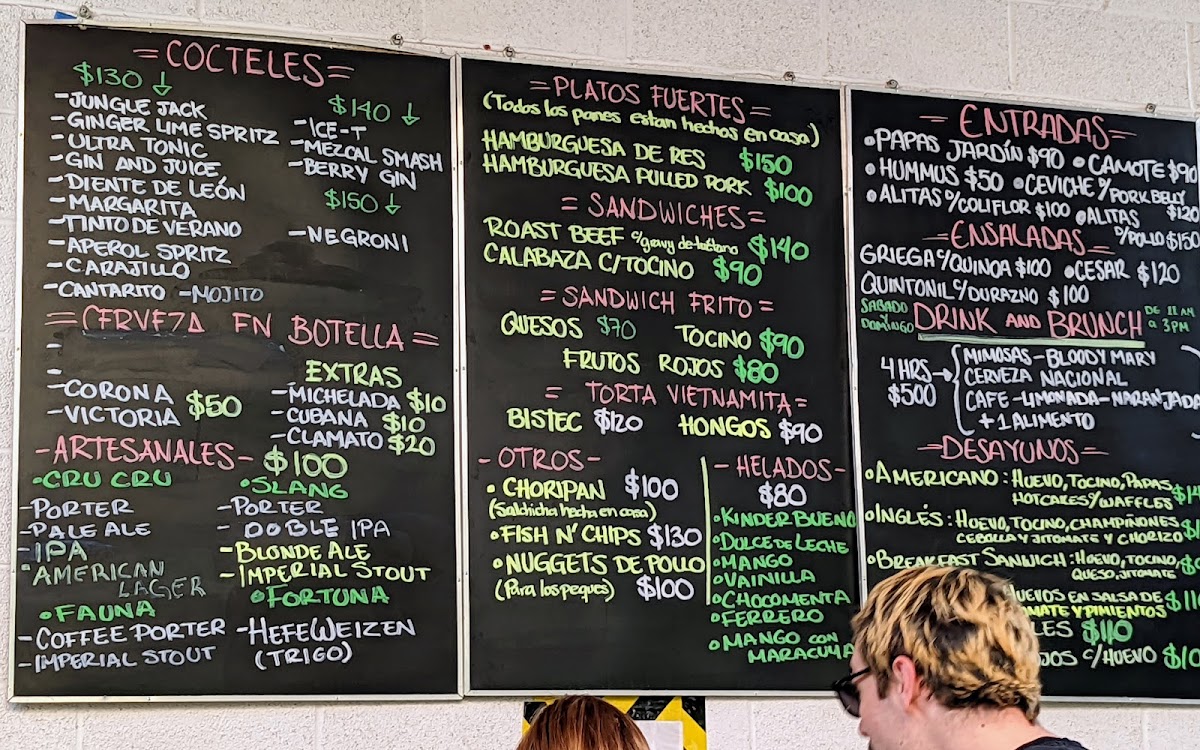 =COCTELES=
$130 ↓
-JUNGLE JACK
-GINGER LIME SPRITZ
-ULTRA TONIC
-GIN AND JUICE
-DIENTE DE LEÓN
-MARGARITA
-TINTO DE VERANO
-APEROL SPRITZ
-CARAJILLO
-CANTARITO -MOJITO
$140 ↓
-ICE-T
-MEZCAL SMASH
-BERRY GIN
$150 ↓
-NEGRONI
=CERVEZA EN BOTELLA=
-CORONA
-VICTORIA $50
EXTRAS
-MICHELADA $10
-CUBANA $10
-CLAMATO $20
-ARTESANALES- $100
•CRU CRU
-PORTER
-PALE ALE
-IPA
•AMERICAN
LAGER
•FAUNA
-COFFEE PORTER
-IMPERIAL STOUT
•SLANG
-PORTER
- DOBLE IPA
-BLONDE ALE
-IMPERIAL STOUT
•FORTUNA
-HEFEWEIZEN
(TRIGO)
=PLATOS FUERTES=
(Todos los panes estan hechos en casa)
HAMBURGUESA DE RES $150
HAMBURGUESA PULLED PORK $100
=SANDWICHES=
ROAST BEEF c/gravy $140
CALABAZA C/TOCINO $90
=SANDWICH FRITO=
QUESOS $70 TOCINO $90
FRUTOS ROJOS $80
= TORTA VIETNAMITA=
BISTEC $120 HONGOS $90
-OTROS-
•CHORIPAN $100
(Salchicha hecha en casa)
•FISH N' CHIPS $130
•NUGGETS DE POLLO
(Para los peques) $100
-HELADOS-
$80
•KINDER BUENO
•DULCE DE LECHE
•MANGO
•VAINILLA
•CHOCOMENTA
•FERRERO
•MANGO CON
MARACUYA
=ENTRADAS=
•PAPAS JARDÍN $90 •CAMOTE $90
•HUMMUS $50 •CEVICHE c/PORK BELLY
$120
•ALITAS D/COLIFLOR $100 •ALITAS
D/POLLO $150
=ENSALADAS=
GRIEGA c/QUINOA $100 •CESAR $120
QUINTONIL c/DURAZNO $100
SABADO
Y
DOMINGO
DRINK AND BRUNCH
DE 11 AM
a 3PM
4 HRS→
$500
MIMOSAS-BLOODY MARY
CERVEZA NACIONAL
CAFE-LIMONADA-NARANJADA
+1 ALIMENTO
=DESAYUNOS=
•AMERICANO: HUEVO, TOCINO, PAPAS,
HOTCAKES Y/WAFFLES
•INGLÉS: HUEVO, TOCINO, CHAMPIÑONES
CEBOLLA Y JITOMATE Y CHORIZO
•BREAKFAST SANWICH: HUEVO, TOCINO,
QUESO, JITOMATE
HUEVOS EN SALSA DE
Y PIMIENTOS
$110
C/HUEVO